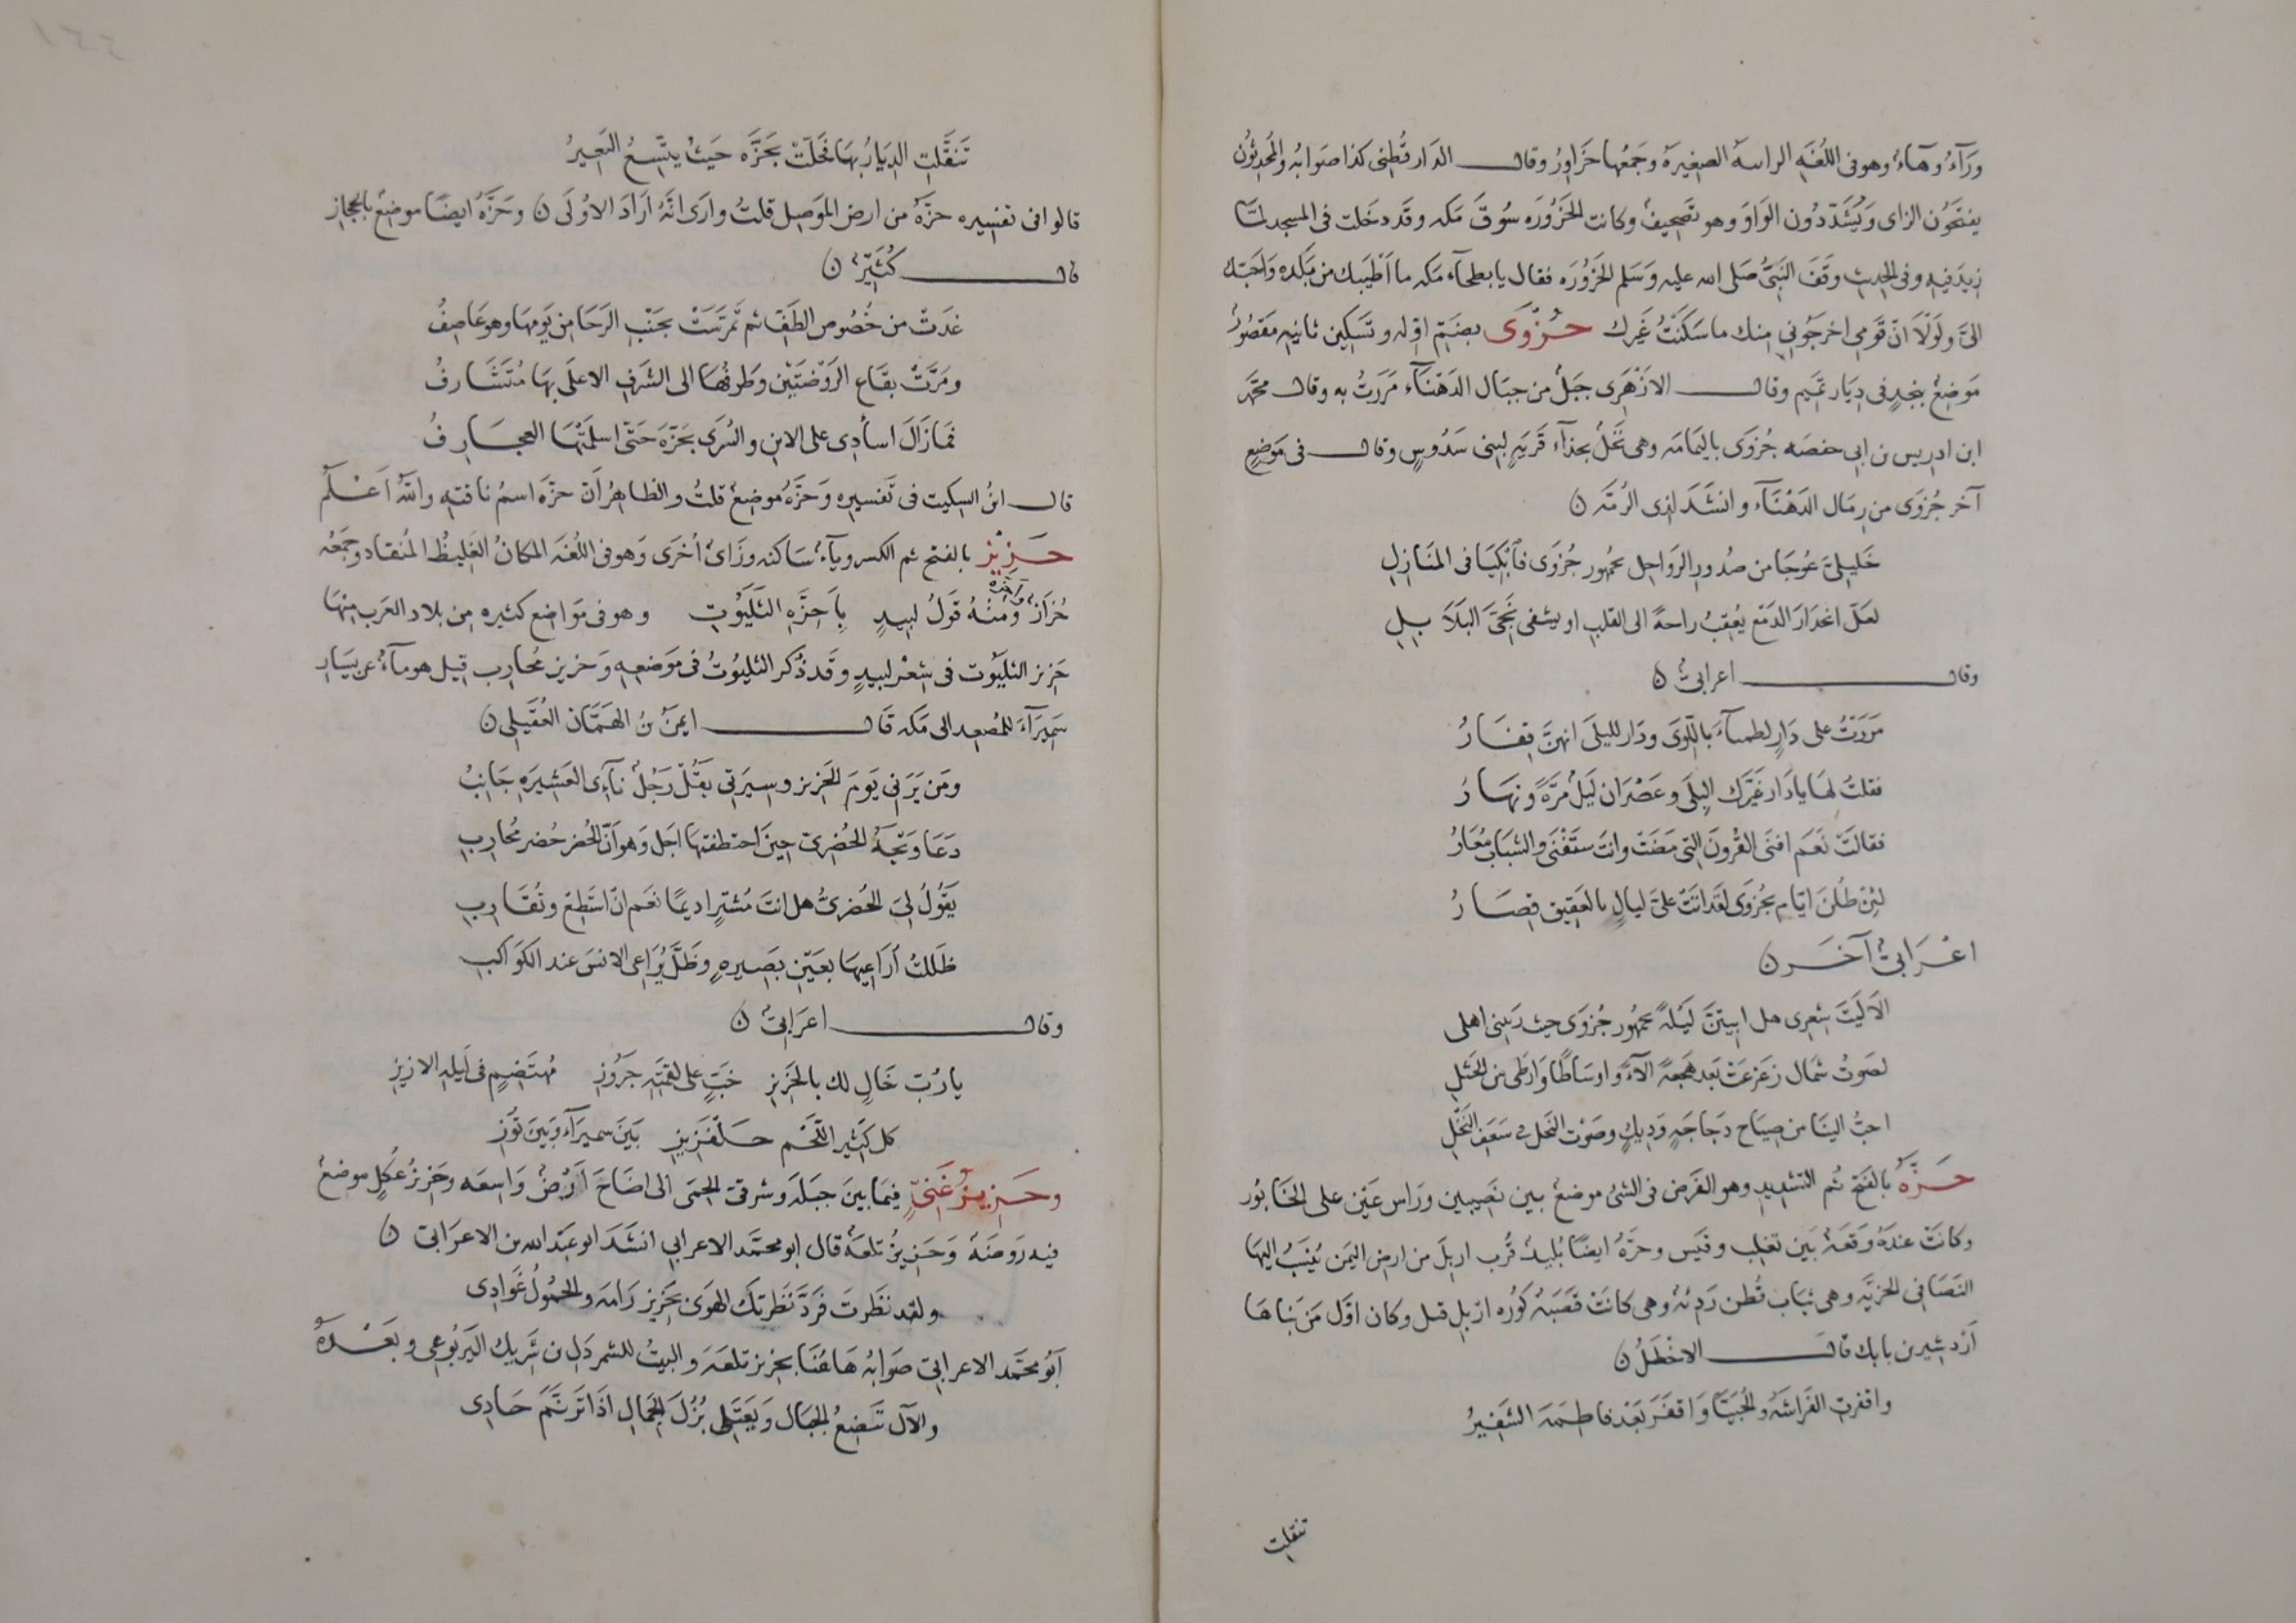 ورآء وهاء وهو فى اللغه الراسه الصغيرة وجمعها حزاور وقال الدارقطنى كذا صوابه والمحدثون
يفتحون الزاى ويشددون الواو وهو تصحيف وكانت الحزوره سوق مكه وقد دخلت فى المسجد لما
زيد فيه وفى الحديث وقف النبى صلى الله عليه وسلم الحزوره فقال يا بطحآء مكه ما اطيبك من بلده واحبك
الىّ ولولا انّ قومى اخرجونى منك ما سكنت غيرك حُزْوَى بضم اوله وتسكين ثانيه مقصور
موضع بنجد فى ديار تميم وقال الازهرى جبل من جبال الدهنآء مررت به وقال محمد
ابن ادريس بن ابى حفصه حزوى باليمامه وهى نخل بحذآء قرية لبنى سدوس وقال فى موضع
آخر حزوى من رمال الدهنآء وانشد لذى الرمّه ن
خليلىّ عوجا من صدور الرواحل بجمهور حزوى فابكيا فى المنازل
لعل انحدار الدمع يعقب راحة الى القلب او يشفى نجىّ البلابل
وقال اعرابىّ ن
مررت على دار لظمياء باللوى ودار لليلى انهن قفار
فقلت لها يا دار غيّرك البلى وعصران ليل مرّة ونهار
فقالت نعم افنى القرون التى مضت وانت ستفنى والشباب معار
لئن طلن ايام بحزوى لقد اتت علىّ ليال بالعقيق قصار
اعرابىّ آخر ن
الا ليت شعرى هل ابيتنّ ليلة بجمهور حزوى حيث ربتنى اهلى
لصوت شمال زعزعت بعد هجعة الآء واوساطا وارطى من الحبل
احبّ الينا من صياح دجاجة وديك وصوت النخل فى سعف النخل
حَزَّةُ بالفتح ثم التشديد وهو الفرض فى الشئ موضع بين نصيبين وراس عين على الخابور
وكانت عنده وقعة بين تغلب وقيس وحزّة ايضا بليدة قرب اربل من ارض اليمن ينسب اليها
النصافى الحزيّه وهى ثياب قطن رديئة وهى كانت قصبة كوره اربل قبل وكان اوّل من بناها
اردشير بن بابك قال الاخطل ن
واقفرت الفراشة والحبيّا واقفر بعد فاطمة الشفير
تنقلت
تنقّلت الديار بها فحلّت بحزّه حيث ينتسع البعير
قالوا فى تفسيره حزّة من ارض الموصل قلت وارى انّه اراد الاولى ن وحزّة ايضا موضع بالحجاز
قال كُثَيِّر ن
غدت من خصوص الطفّ ثم تمرّست بجنب الرحا من يومها وهو عاصف
ومرّت بقاع الروضتين وطرفها الى الشرف الاعلى بها متشارف
فما زال اسآدى على الاين والسرى بحزّة حتى اسلمتها العجارف
قال ابن السكيت فى تفسيره وحزّة موضع قلت والظاهر ان حزّه اسم ناقته والله اعلم
حَزِيْز بالفتح ثم الكسر ويآء ساكنه وزاى اخرى وهو فى اللغه المكان الغليظ المنقاد وجمعه
حزاز واحزة ومنه قول لبيد باحزّه الثلبوت وهو فى مواضع كثيره من بلاد العرب منها
حزيز الثلبوت فى شعر لبيد وقد ذكر الثلبوت فى موضعه وحزيز محارب قيل هو مآء عن يسار
سميرآء للمصعد الى مكه قال ايمن بن الهمّان العقيلى ن
ومن يرنى يوم الحزيز وسيرتى يقل رجل نآءى العشيرة جانب
دعا وتجّه الحضرىّ حين اختطفتها اجل وهو انّ الحضر حضر محارب
يقول لى الحضرىّ هل انت مشتر اديما نعم ان استطع وتقارب
ظللت أراعيها بعين بصيرة وظلّ يراعى الانس عند الكواكب
وقال اعرابىّ ن
يا ربّ خال لك بالحزيز خبّ على لقمته جروز مهتضم فى ليله الازيز
كل كثير اللحم جلفزيز بين سميرآء وبين توز
وحَزِيزُ غَنِيّ فيما بين جبلة وشرقى الحمى الى اضاخ ارض واسعه وحزيز عكل موضع
فيه روضة وحزيز تلعة قال ابو محمد الاعرابى انشد ابو عبد الله بن الاعرابى ن
ولقد نظرت فردّ نظرتك الهوى بحزيز رامة والحمول غوادى
ابو محمد الاعرابى صوابه هاهنا بحزيز تلعة والبيت للشمردل بن شريك اليربوعى وبعده
والآل تتضع الجبال ويعتلى بزل الجمال اذا ترنّم حادى